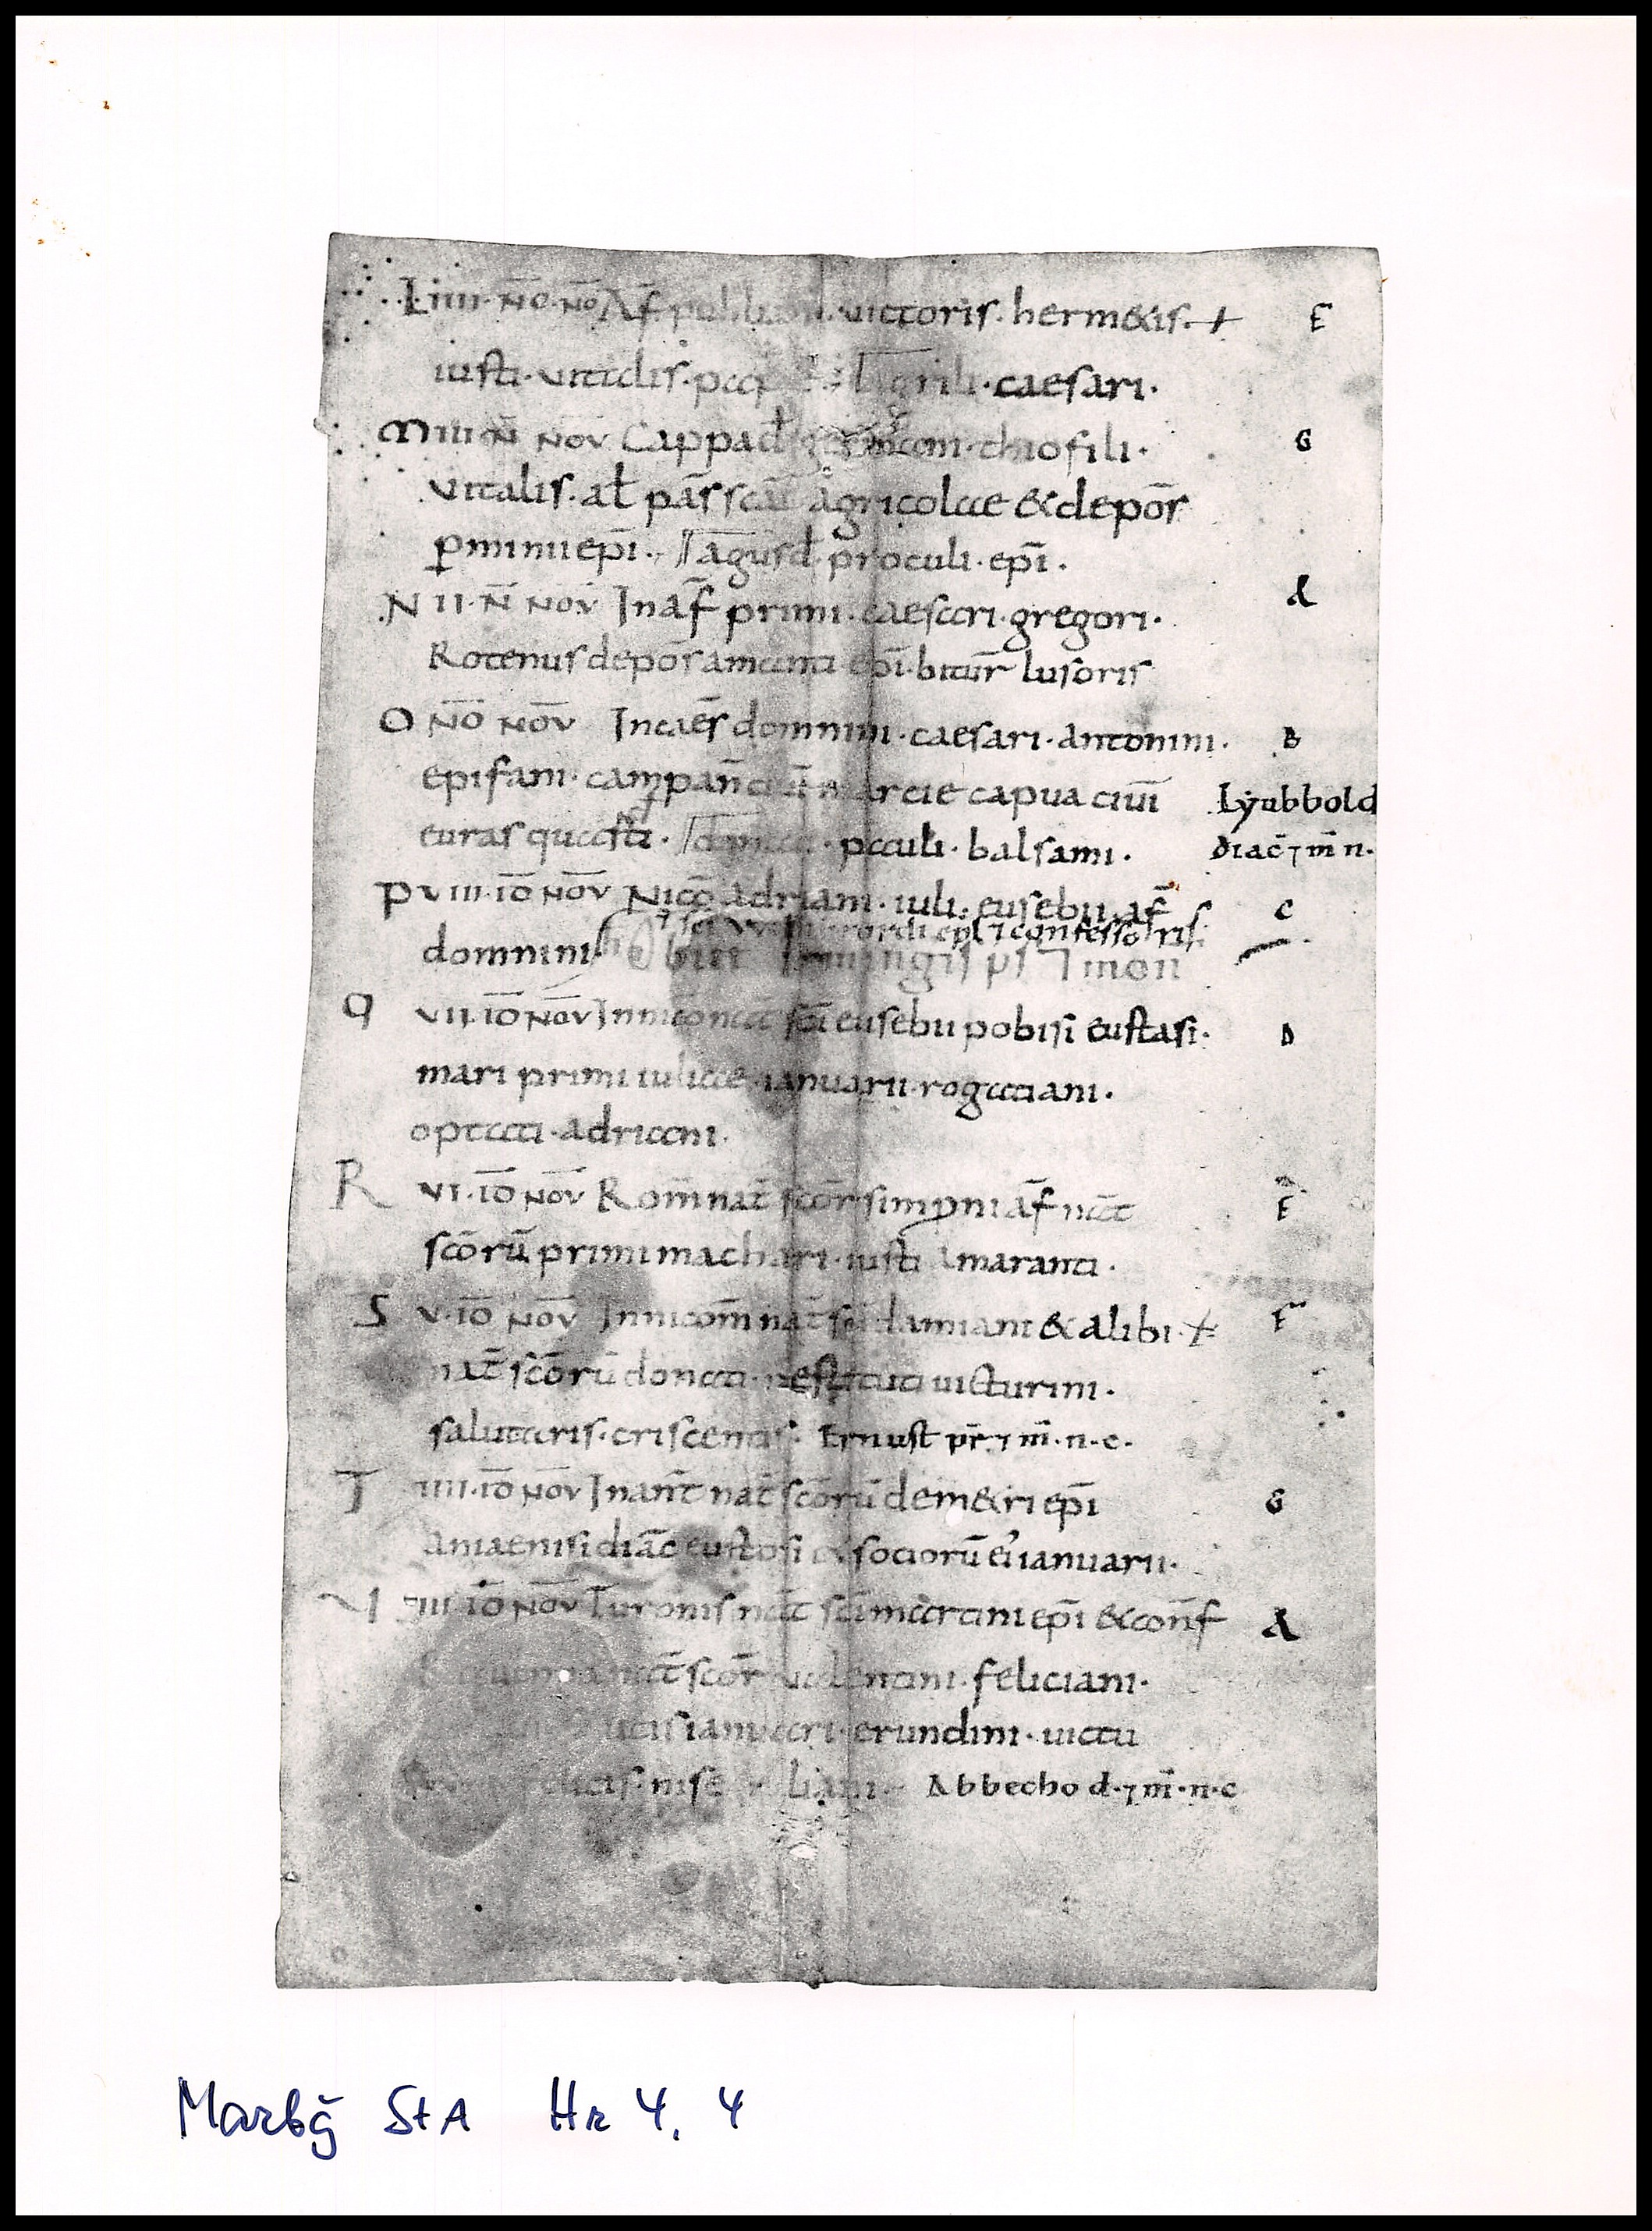 L iiii·N̄O·N̄O Af̄ publiani·uictoris·herm&is·+ F
iusti·uitalis· caesari·
M iii N̄ NOV̄ Cappad̄ ·thiofili· G
vitalis·at pār̄s sc̄ī agricolae & depōs
ꝑminii ep̄i· agusd̄ proculi·ep̄i·
N II·N̄ NOV̄ In af̄ primi·caesari·gregori· A
Rotenus depōs amanti ep̄i·bitur̄ lusoris
O N̄O NOV̄ In caes̄ domnini·caesari·antonini· B
epifani·campan̄ ciuī marcie capua ciui Lyubbold
euras quaesti· ·pauli·balsami· diac̄ ⁊ m̄ n·
P VIII·ID̄ NOV̄ Nicō adriani·iuli·eusebii·af̄ C
⁊ sc̄i ep̄i ⁊ confessoris·
domnini· Obiit ingis ps̄ ⁊ mon
Q VII·ID̄ NOV̄ In nicō nat̄ sc̄ī eusebii pobisi eustasi· D
mari primi iuliae·ianuarii·rogatiani·
optati·adriani·
R VI·ID̄ NOV̄ Rom̄ nat̄ scōr̄ simproni af̄ nat̄ E
scōrū primi machari·iusti amaranti·
S V·ID̄ NOV̄ In nicom̄ nat̄ sc̄ī damiani & alibi·+ F
nat̄ scōrū donati·restituti uicturini·
salutaris·criscentis· Ernust pr̄ ⁊ m̄·n·c·
T IIII·ID̄ NOV̄ In ant̄ nat̄ scōrū dem&ri ep̄i G
aniaenisi diāc eustosi & sociorū ei' ianuarii·
V III ID̄ NOV̄ Turonis nat̄ sc̄ī martini ep̄i & conf̄ A
nat̄ scōr̄ ualentini·feliciani·
ianuari·erundini·uictu
·nise Abbecho d·⁊ m̄·n·c
Marbg̃ StA Hr 4, 4